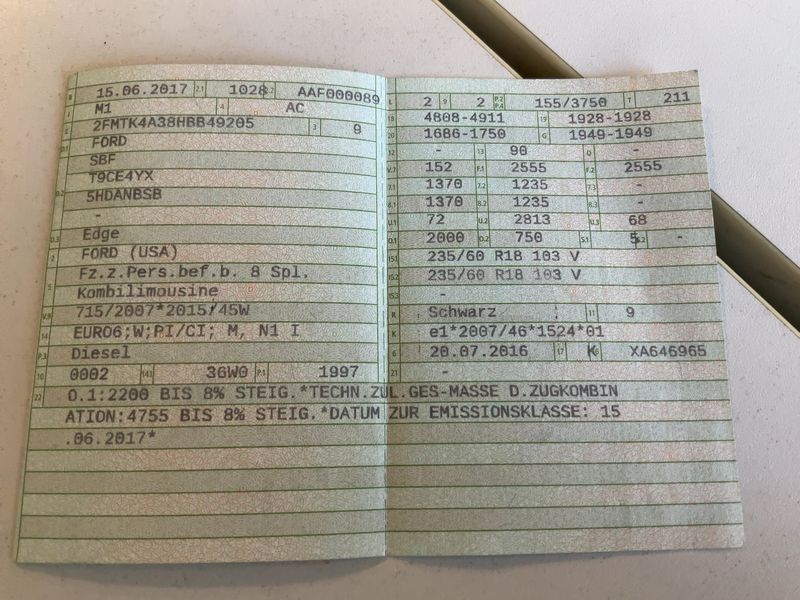 B 15.06.2017 2.1 1028 2.2 AAF000089
J M1 4 AC
E 2FMTK4A38HBB49205 3 9
D.1 FORD
SBF
T9CE4YX
D.2 5HDANBSB
-
D.3 Edge
2 FORD (USA)
Fz.z.Pers.bef.b. 8 Spl.
5 Kombilimousine
V.9 715/2007*2015/45W
14 EURO6;W;PI/CI; M, N1 I
P.3 Diesel
10 0002 14.1 36W0 P.1 1997
L 2 9 2 P.2 P.4 155/3750 T 211
18 4808-4911 19 1928-1928
20 1686-1750 G 1949-1949
12 - 13 90 Q -
V.7 152 F.1 2555 F.2 2555
7.1 1370 7.2 1235 7.3 -
8.1 1370 8.2 1235 8.3 -
U.1 72 U.2 2813 U.3 68
O.1 2000 O.2 750 S.1 5 S.2 -
15.1 235/60 R18 103 V
15.2 235/60 R18 103 V
15.3 -
R Schwarz 11 9
K e1*2007/46*1524*01
6 20.07.2016 17 K 16 XA646965
21 -
22 O.1:2200 BIS 8% STEIG.*TECHN.ZUL.GES-MASSE D.ZUGKOMBIN
ATION:4755 BIS 8% STEIG.*DATUM ZUR EMISSIONSKLASSE: 15
.06.2017*